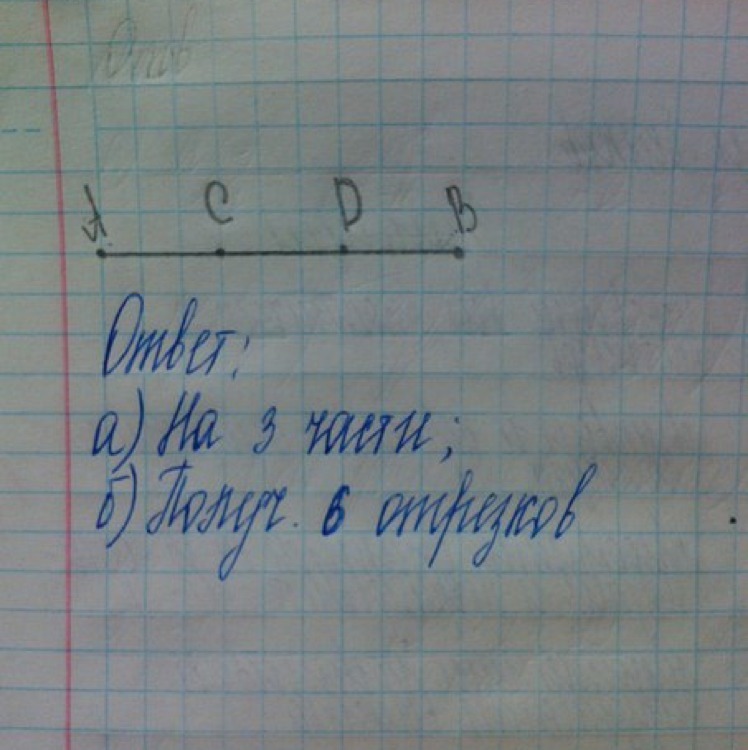 A C D B
Ответ:
а) На 3 части;
б) Получ. 6 отрезков